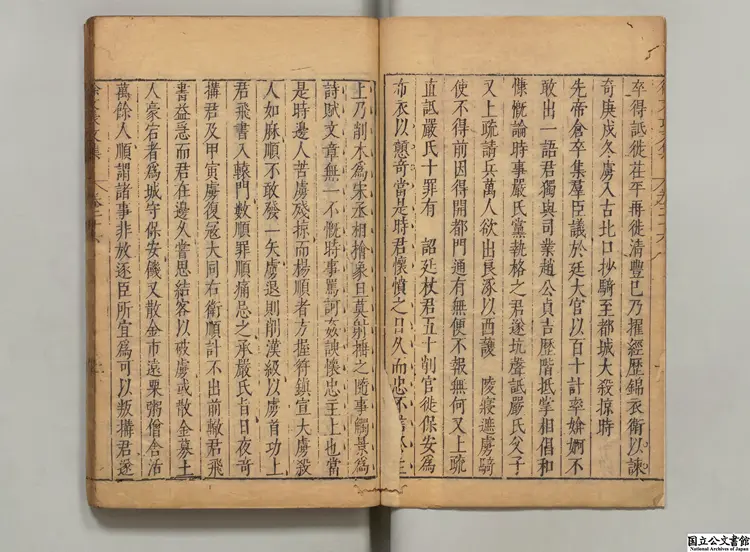 卒得詆徙茌平再徙清豐巳乃擢經歷錦衣衛以諫
奇庚戌冬虜入古北口抄騎至都城大殺掠時
先帝倉卒集羣臣議於廷大官以百十計率媕婀不
敢出一語君獨與司業趙公貞吉歷階抵掌相倡和
慷慨論時事嚴氏黨執格之君遂抗聲詆嚴氏父子
又上疏請兵萬人欲出良涿以西護 陵寢遮虜騎
使不得前因得開都門通有無便不報無何又上疏
直詆嚴氏十罪有 詔廷杖君五十削官徙保安爲
布衣以戇奇當是時君懷憤之日久而忠不
上乃削木爲宋丞相檜象旦莫射捶之隨事觸景爲
詩賦文章無一不慨時事罵訶姦諛懷忠主上也當
是時邊人苦虜殘掠而楊順者方握符鎮宣大虜殺
人如麻順不敢發一矢虜退則削漢級以虜首功上
君飛書入轅門數順罪順痛忌之承嚴氏旨日夜奇
搆君及甲寅虜復寇大同右衛順計不出前轍君飛
書益急而君在邊久嘗思結客以破虜或散金募土
人豪右者爲城守保安饑又散金市遠粟粥僧舍活
萬餘人順謂諸事非放逐臣所宜爲可以叛搆君遂
卷二十六
国立公文書館
National Archives of Japan